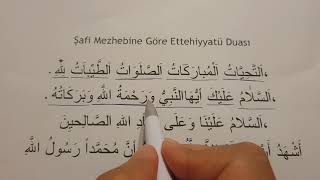 Şafi Mezhebine Göre Ettehiyyatü Duası
اَلتَّحِيَّاتُ الْمُبَارَكَاتُ الصَّلَوَاتُ الطَّيِّبَاتُ لِلّٰهِ.
اَلسَّلَامُ عَلَيْكَ اَيُّهَا النَّبِيُّ وَرَحْمَةُ اللّٰهِ وَبَرَكَاتُهُ.
اَلسَّلَامُ عَلَيْنَا وَعَلَى اللّٰهِ الصَّالِحِينَ
اَشْهَدُ اَنَّ مُحَمَّداً رَسُولُ اللّٰهِ